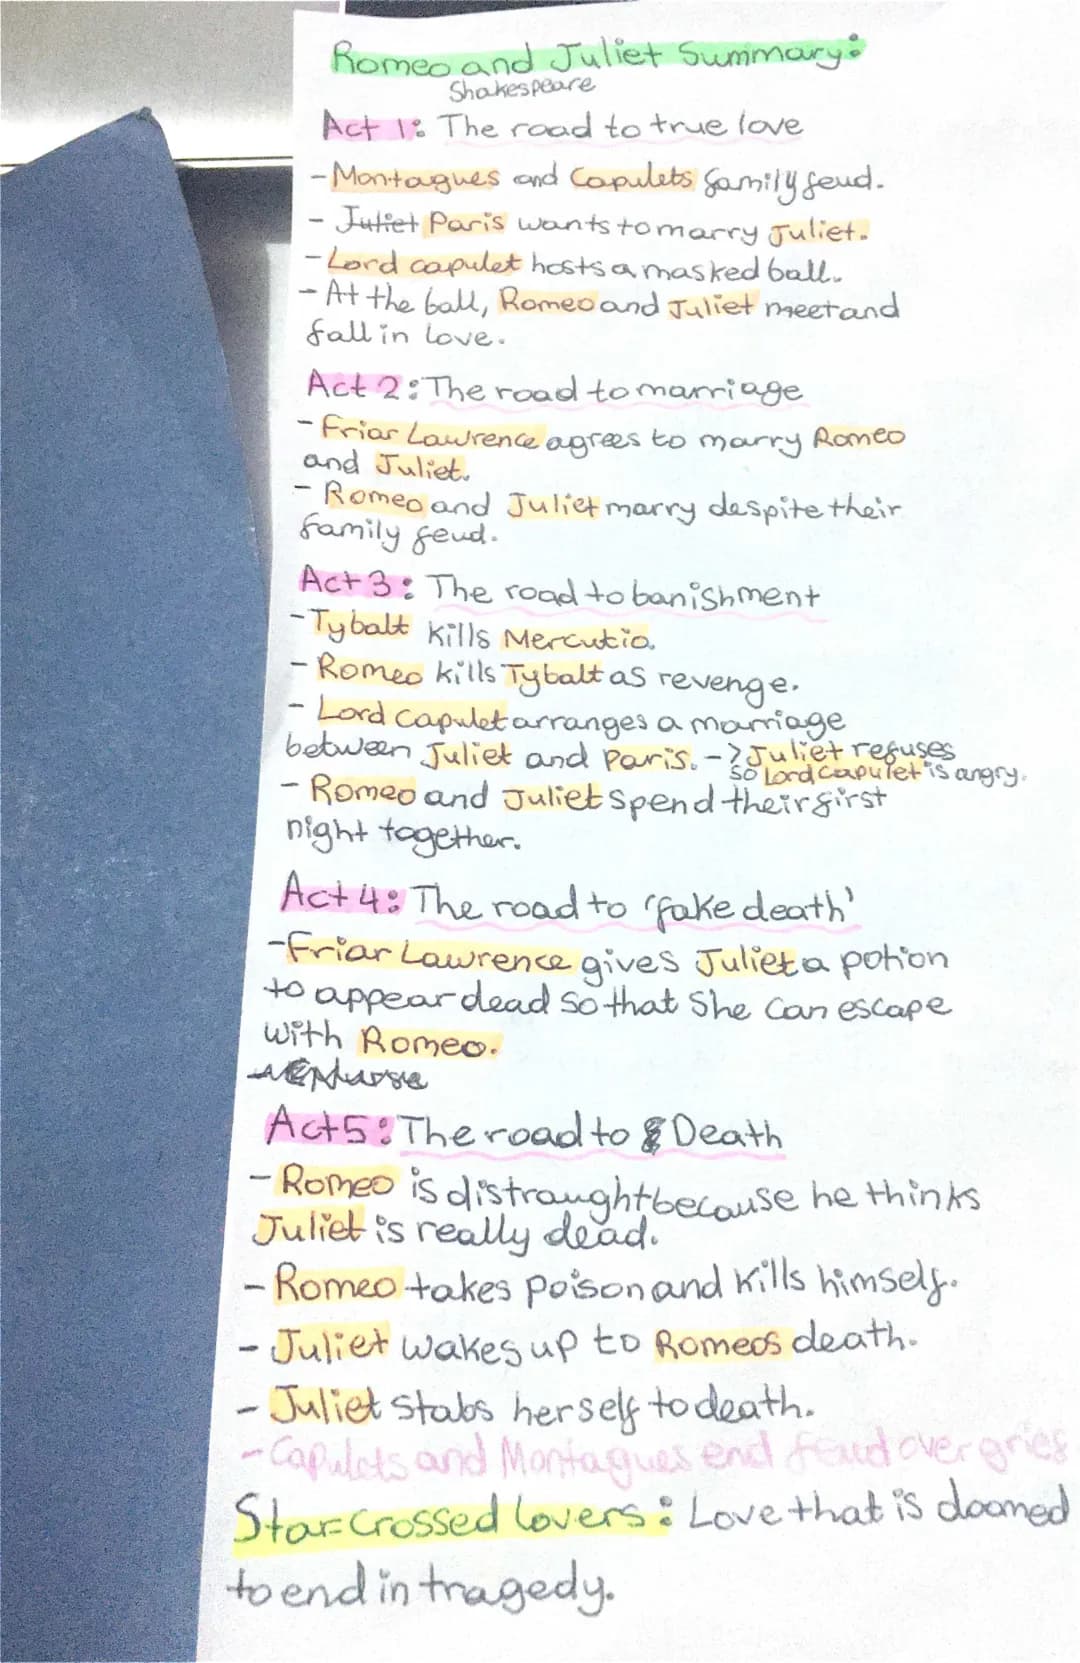 Romeo and Juliet Summary:
Shakespeare
Act 1: The road to true love
- Montagues and Capulets family feud.
- Juliet Paris wants to marry Juliet.
- Lord capulet hosts a masked ball.
- At the ball, Romeo and Juliet meet and
fall in love.
Act 2: The road to marriage
- Friar Lawrence agrees to marry Romeo
and Juliet.
- Romeo and Juliet marry despite their
family feud.
Act 3: The road to banishment
- Tybalt kills Mercutio.
- Romeo kills Tybalt as revenge.
- Lord Capulet arranges a marriage
between Juliet and Paris. -> Juliet refuses
so Lord Capulet is angry.
- Romeo and Juliet spend their first
night together.
Act 4: The road to 'fake death'
- Friar Lawrence gives Juliet a potion
to appear dead so that She can escape
with Romeo.
Nurse
Act 5: The road to Death
- Romeo is distraught because he thinks
Juliet is really dead.
- Romeo takes poison and kills himself.
- Juliet wakes up to Romeos death.
- Juliet stabs herself to death.
- Capulets and Montagues end feud over grief
Star-Crossed lovers: Love that is doomed
to end in tragedy.